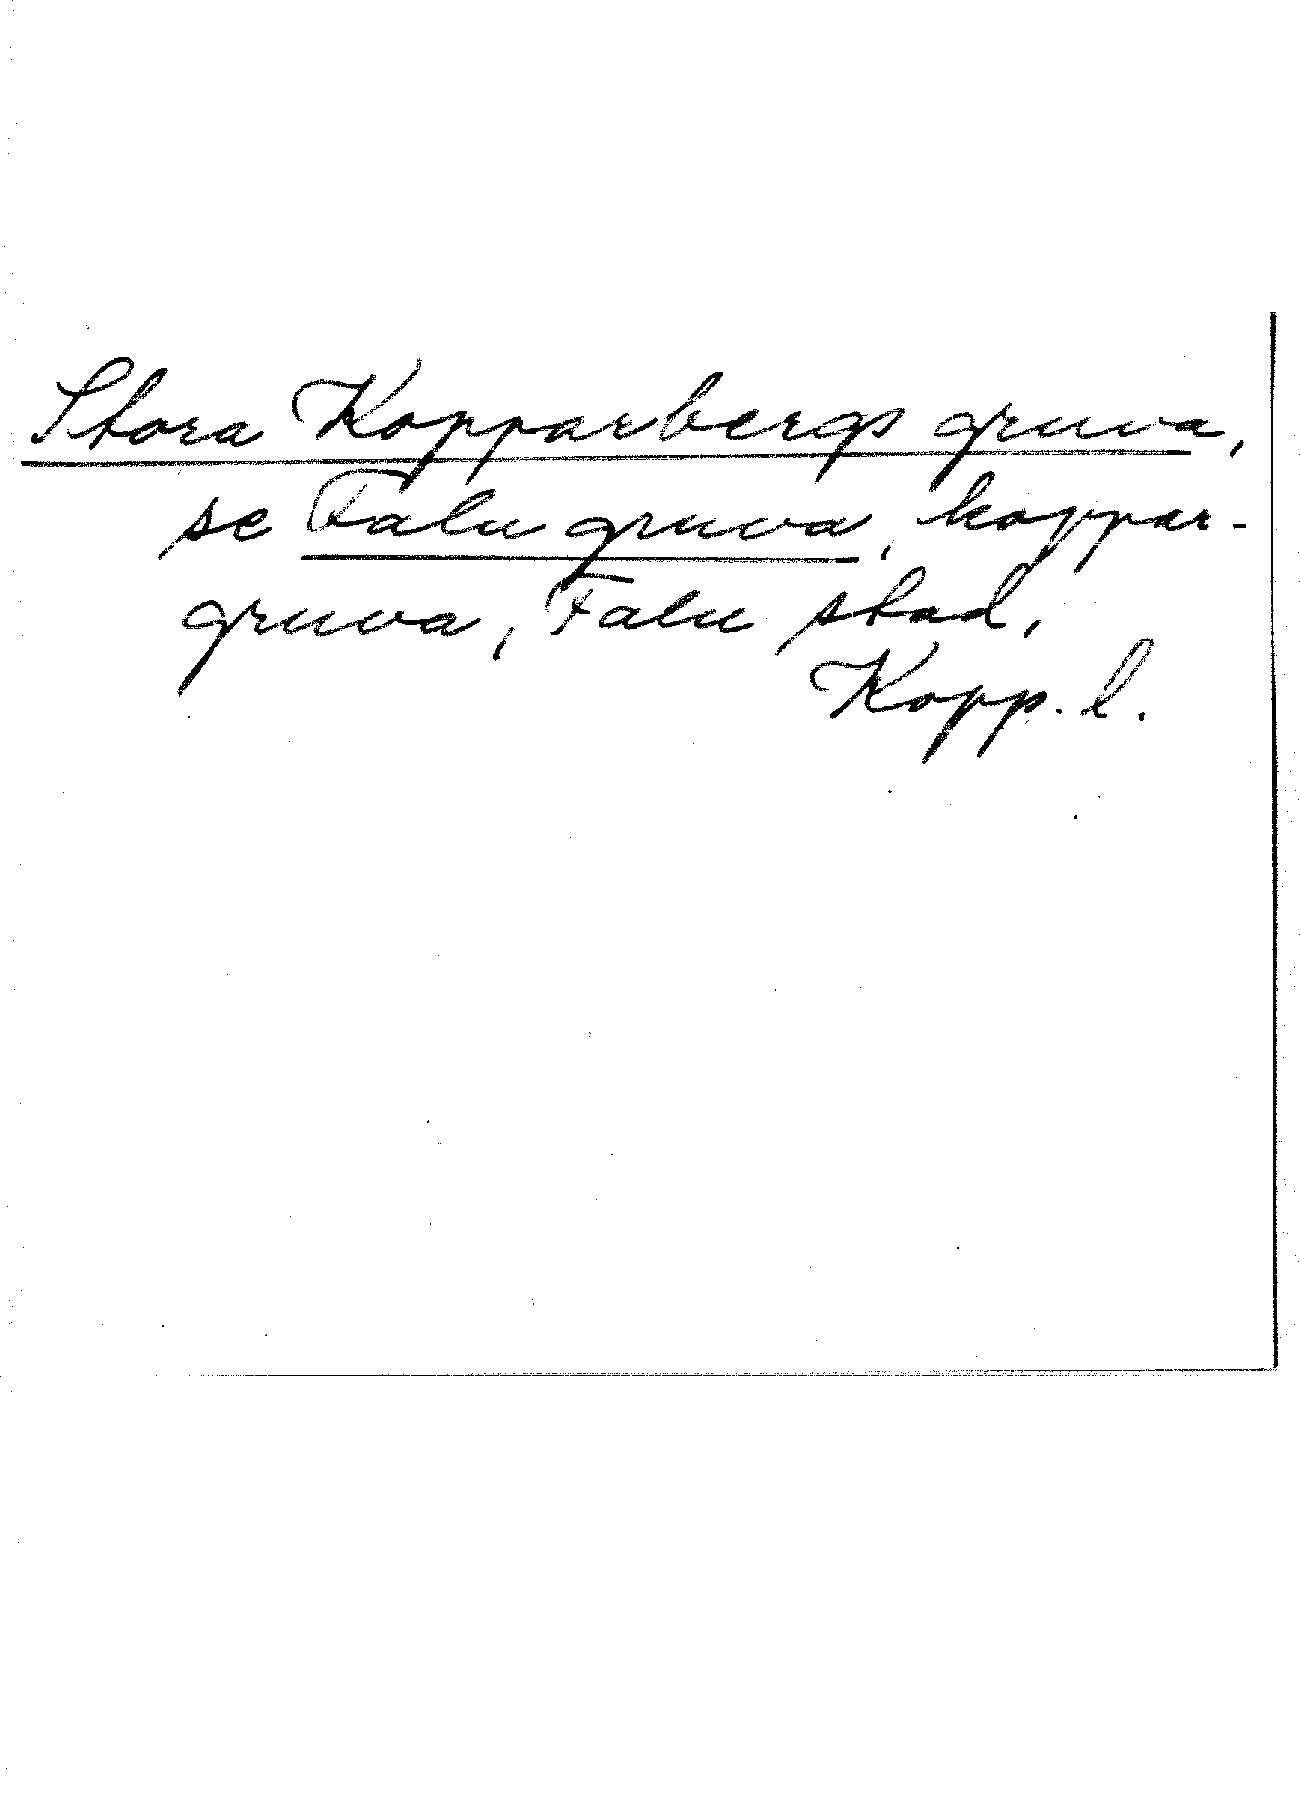 Stora Kopparbergs gruva,
se Falu gruva, koppar-
gruva, Falu stad,
Kopp. l.